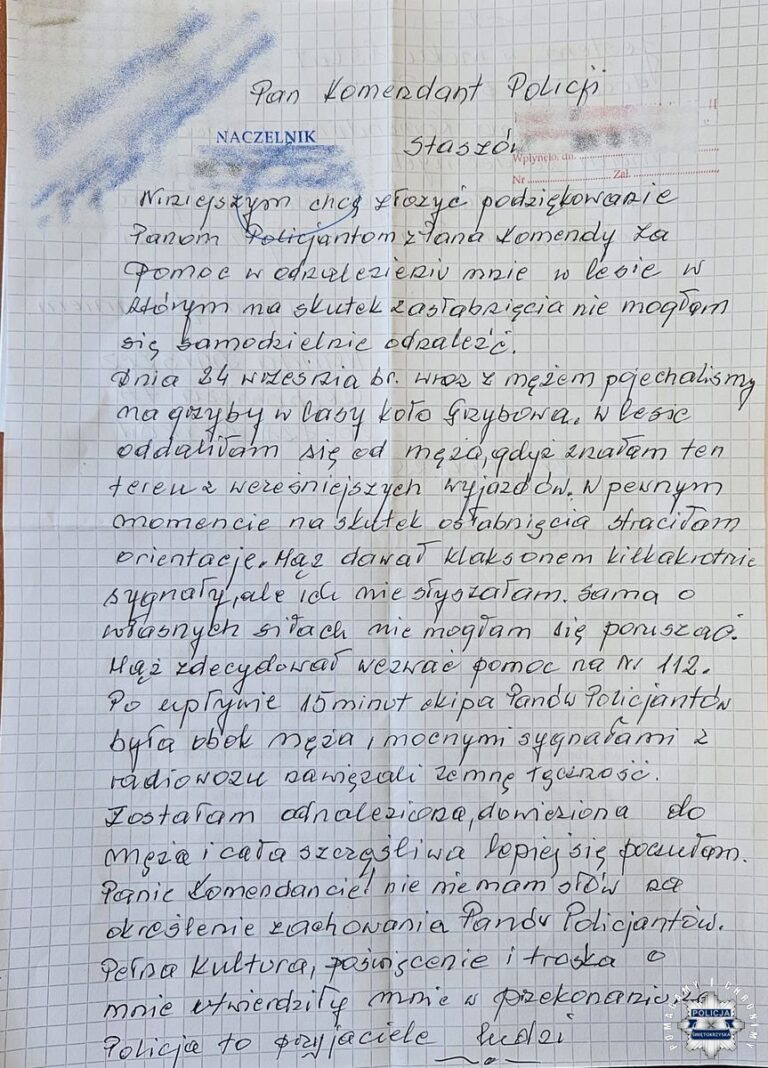 Pan Komendant Policji
NACZELNIK
Staszów
Wpłynęło, dn.
Nr Zał.
Niniejszym chcę złożyć podziękowanie
Panom Policjantom z Pana Komendy za
pomoc w odnalezieniu mnie w lesie w
którym na skutek zasłabnięcia nie mogłam
się samodzielnie odnaleźć.
Dnia 24 września br. wraz z mężem pojechalismy
na grzyby w lasy koło Grzybowa. W lesie
oddaliłam się od męża, gdyż znałam ten
teren z wcześniejszych wyjazdów. W pewnym
momencie na skutek osłabnięcia straciłam
orientację. Mąż dawał klaksonem kilkakrotnie
sygnały, ale ich nie słyszałam. sama o
własnych siłach nie mogłam się poruszać.
Mąż zdecydował wezwać pomoc na Nr 112.
Po upływie 15 minut ekipa Panów Policjantów
była obok męża i mocnymi sygnałami z
radiowozu nawiązali zemną łączność.
Zostałam odnaleziona, dowieziona do
męża i cała szczęśliwa lepiej się poczułam.
Panie Komendancie! nie niemam słów na
określenie zachowania Panów Policjantów.
Pełna kultura, poświęcenie i troska o
mnie utwierdziły mnie w przekonaniu, że
Policja to przyjaciele ludzi
POMAGAMY I CHRONIMY
POLICJA
ŚWIĘTOKRZYSKA